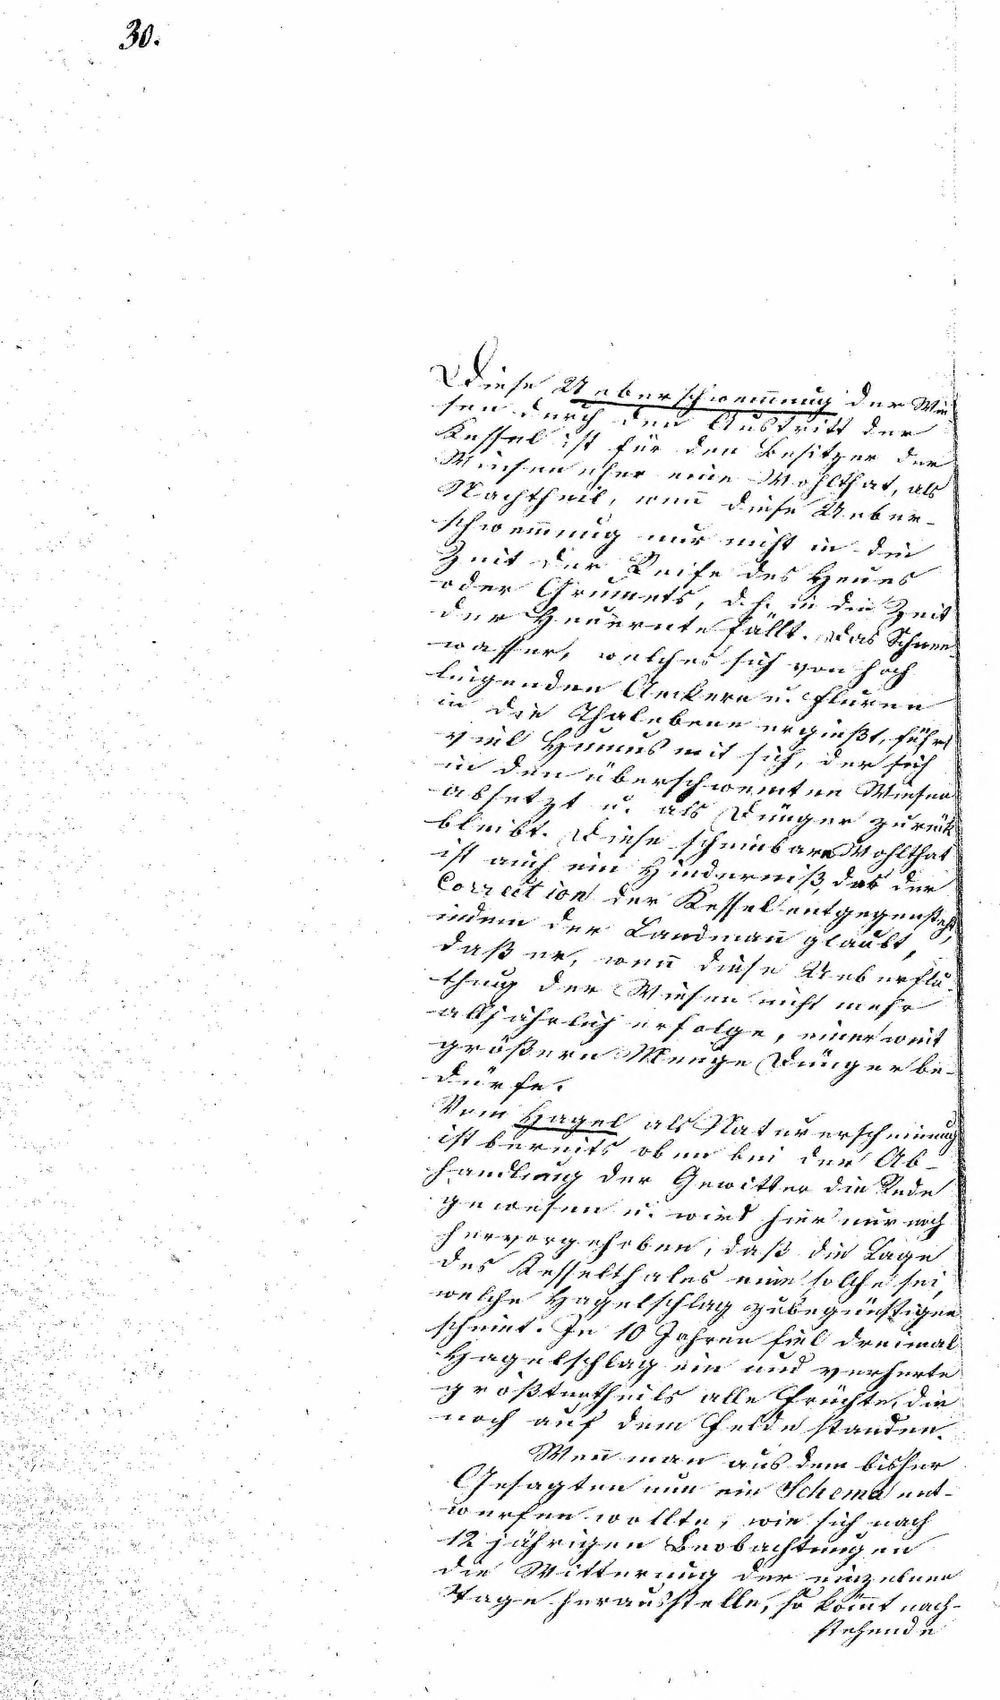 30.
Diese Ueberschwem̄ung der Wie-
sen durch den Austritt der
Kessel ist für den Besitzer der
Wiesen eher eine Wohlthat, als
Nachtheil, wen̄ diese Ueber-
schwem̄ung nur nicht in die
Zeit der Reife des Heues
oder Grumets, d.h. in die Zeit
der Heuernte fällt. Das Schnee-
wasser, welches sich von hoch
liegenden Aeckern u. Fluren
in die Thalebene ergießt, führt
viel Humus mit sich, der sich
in den überschwemten Wiesen
absetzt u. als Dünger zurück
bleibt. Diese scheinbare Wohlthat
ist auch ein Hinderniß, das der
Correction der Kessel entgegensteht,
indem der Landman̄ glaubt,
daß er, wen̄ diese Ueberflu-
thung der Wiesen nicht mehr
alljährlich erfolge, einer weit
größern Menge Dünger be-
dürfe.
Vom Hagel als Naturerscheinung
ist bereits oben bei der Ab-
handlung der Gewitter die Rede
gewesen u. wird hier nur noch
hervorgehoben, daß die Lage
des Kesselthales eine solche sei,
welche Hagelschlag zu begünstigen
scheint. In 10 Jahren fiel dreimal
Hagelschlag ein und verherte
größtentheils alle Früchte, die
noch auf dem Felde standen.
Wen̄ man aus dem bisher
Gesagten nun ein Schema ent-
werfen wollte, wie sich nach
12 jährigen Beobachtungen
die Witterung der einzelnen
Tage herausstelle, so kom̄t nach-
stehende